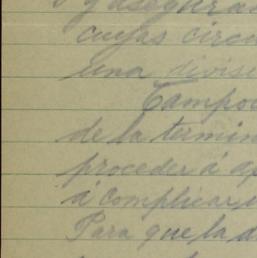 y asegura
cuyas circu
una divise
Tampo
de la termin
proceder á ap
á complicar
Para que la d